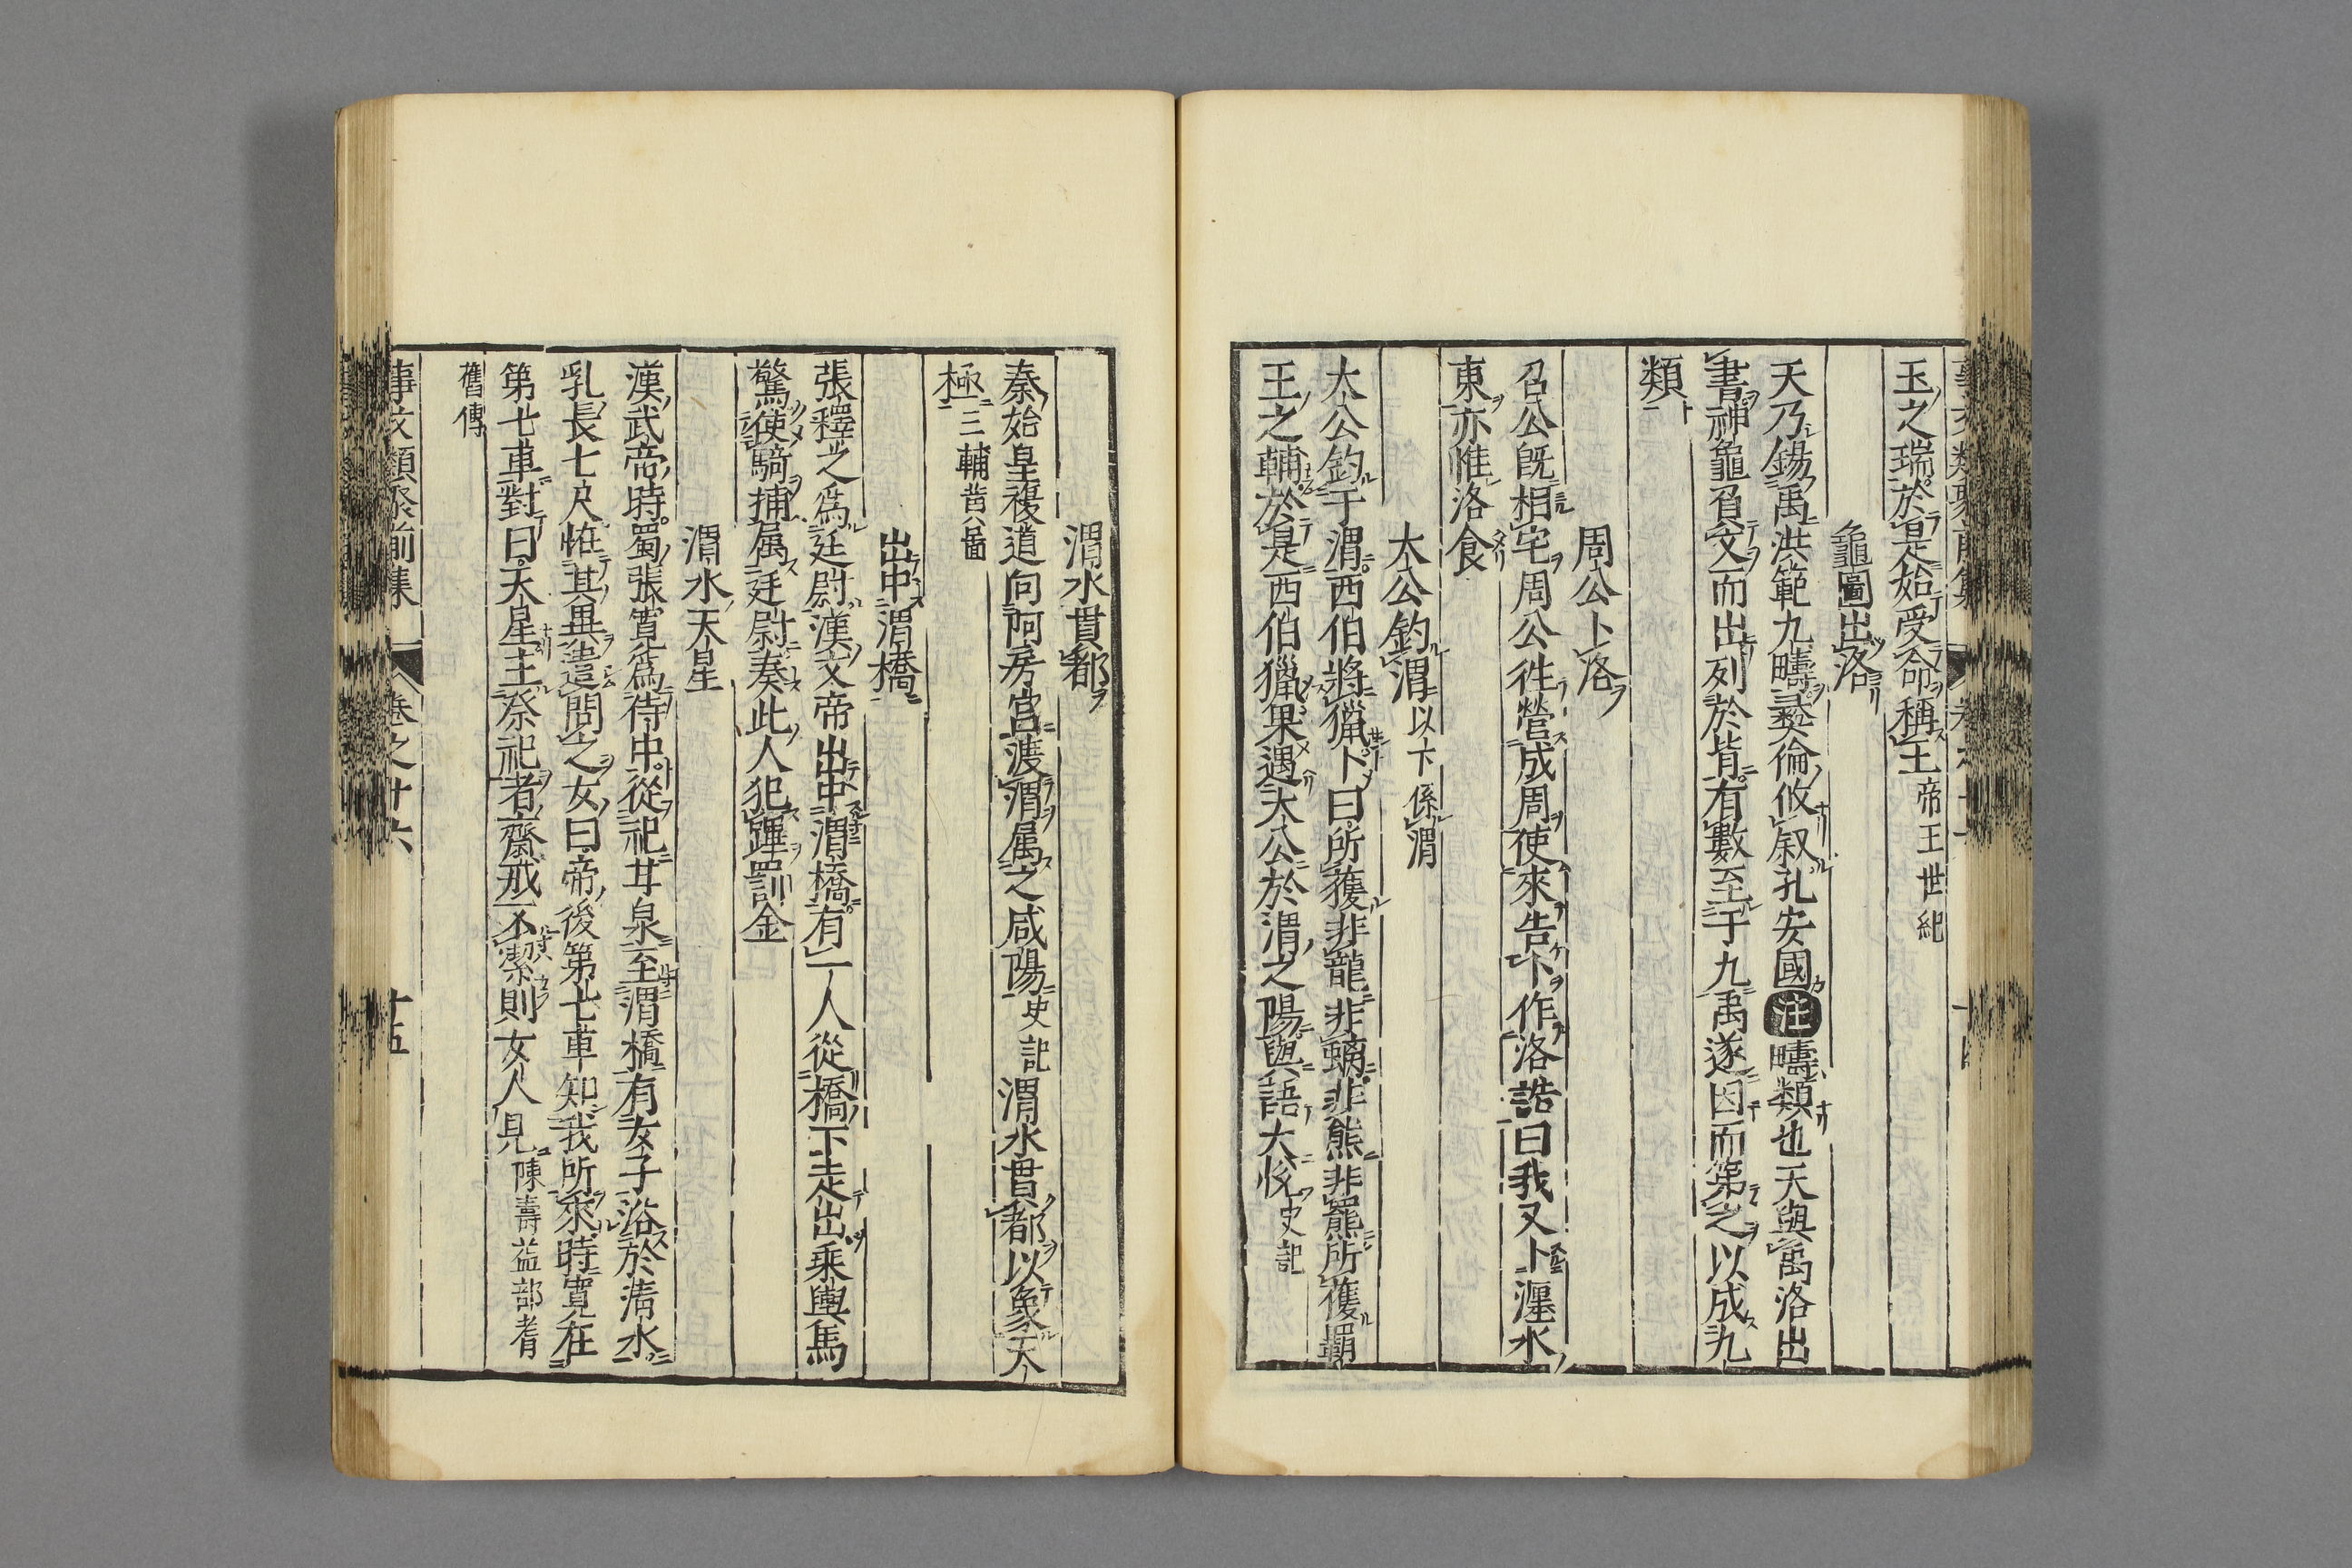 玉之瑞於是始受命稱王帝王世紀
龜圖出洛
天乃錫禹洪範九疇彝倫攸叙孔安國注疇類也天與禹洛出
書神龜負文而出列於背有數至于九禹遂因而第之以成九
類
周公卜洛
召公既相宅周公徃營成周使來告卜作洛誥曰我又卜瀍水
東亦惟洛食
太公釣渭以下係渭
太公釣于渭西伯將獵卜曰所獲非龍非螭非熊非羆所獲霸
王之輔於是西伯獵果遇太公於渭之陽與語大悅史記
渭水貫都
秦始皇複道向阿房宮渡渭属之咸陽史記渭水貫都以象天
極三輔黄圖
出中渭橋
張釋之爲廷尉漢文帝出中渭橋有一人從橋下走出乗輿馬
驚使騎捕属廷尉奏此人犯蹕罰金
渭水天星
漢武帝時蜀張寬爲待中從祀甘泉至渭橋有女子浴於渭水
乳長七尺恠其異遣問之女曰帝後第七車知我所來時寬在
第七車對曰天星主祭祀者齋戒不潔則女人見陳壽益部耆
舊傳
事文類聚前集 卷之十六 十五